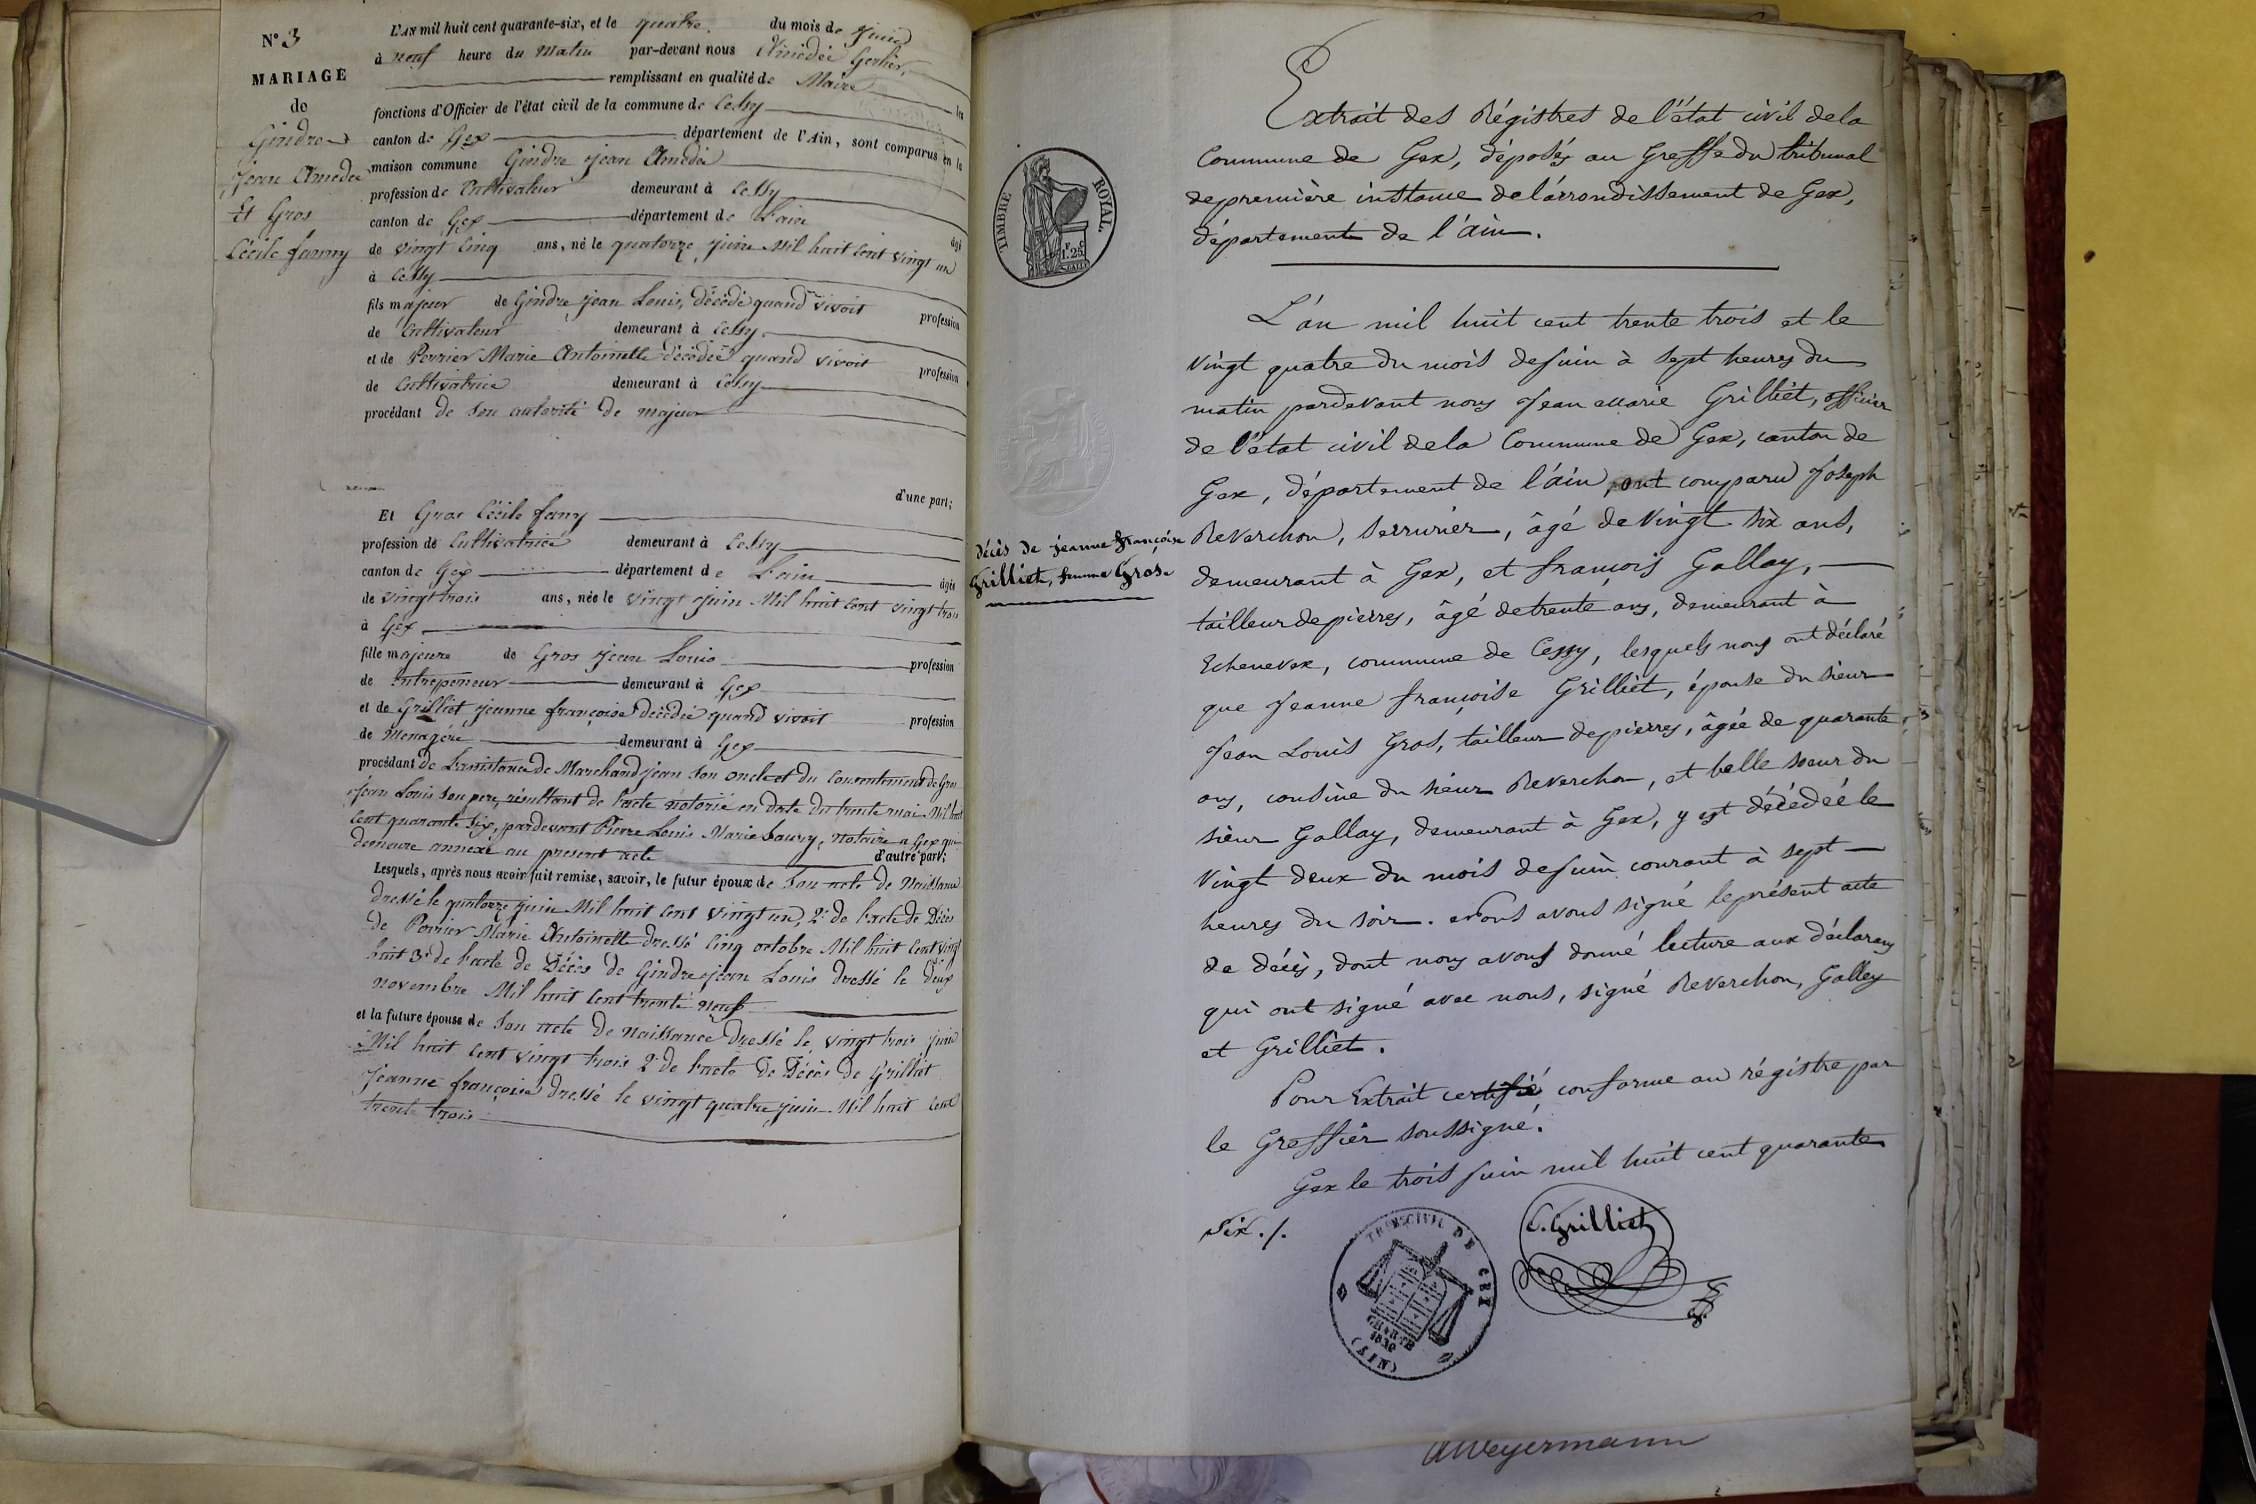 N° 3
MARIAGE
de
Gindre
Jean Amedée
Et Gros
Cécile fanny
L'AN mil huit cent quarante-six, et le quatre du mois de Juin
à neuf heure du Matin par-devant nous Amédée Gerlier,
remplissant en qualité de Maire les
fonctions d'Officier de l'état civil de la commune de Cessy
canton de Gex département de l'Ain, sont comparus en la
maison commune Gindre Jean Amédée
profession de Cultivateur demeurant à Cessy
canton de Gex département de L'ain
âgé
de vingt Cinq ans, né le quatorze juin Mil huit Cent vingt un
à Cessy
fils majeur de Gindre Jean Louis, décédé quand vivoit profession
de Cultivateur demeurant à Cessy
et de Perrier Marie Antoinette décédée quand vivoit profession
de Cultivatrice demeurant à Cessy
procédant de son autorité de majeur
d'une part;
Et Gros Cécile fany
profession de Cultivatrice demeurant à Cessy
canton de Gex département de L'ain âgée
de vingt trois ans, née le vingt Juin Mil huit Cent vingt trois
à Gex
fille majeure de Gros Jean Louis profession
de Entrepeneur demeurant à Gex
et de Grilliet Jeanne françoise décédée quand vivoit profession
de Menagère demeurant à Gex
procédant de L'assistance de Marchand jean son oncle et du Consentement de Gros
Jean Louis son pere, résultant de l'acte notorié en date du trente mai Mil huit
Cent quarante six, pardevant Pierre Louis Marie notaire a Gex qui
demeure annexé au present acte d'autre part;
Lesquels, après nous avoir fait remise, savoir, le futur époux de Son acte de Naissance
dressé le quatorze juin Mil huit Cent vingt un, 2° de l'acte de Décès
de Perrier Marie Antoinette dressé Cinq octobre Mil huit Cent vingt
huit 3° de l'acte de Décès de Gindre Jean Louis dressé le Deux
novembre Mil huit Cent trente neuf
et la future épouse de Son acte de naissance dressé le vingt trois juin
Mil huit Cent vingt trois 2° de l'acte de Décès de Grilliet
Jeanne françoise dressé le vingt quatre juin Mil huit Cent
trente trois
TIMBRE ROYAL
1.25
décès de jeanne françoise
Grilliet, femme Gros.
Extrait des Régistres de l'état civil de la
Commune de Gex, déposés au Greffe du tribunal
de première instance de l'arrondissement de Gex,
département de l'ain.
L'an mil huit cent trente trois et le
vingt quatre du mois de Juin à sept heures du
matin pardevant nous Jean Marie Grilliet, officier
de l'état civil de la Commune de Gex, canton de
Gex, département de l'ain, ont comparu Joseph
Reverchon, serrurier, âgé de vingt six ans,
demeurant à Gex, et françois Gallay,
tailleur de pierres, âgé de trente ans, demeurant à
Echenevex, commune de Cessy, lesquels nous ont déclaré
que Jeanne françoise Grilliet, épouse du sieur
Jean Louis Gros, tailleur de pierres, âgée de quarante
ans, cousine du sieur Reverchon, et belle soeur du
sieur Gallay, demeurant à Gex, y est décédée le
vingt deux du mois de Juin courant à sept
heures du soir. Nous avons signé le présent acte
de décès, dont nous avons donné lecture aux déclarans
qui ont signé avec nous, signé Reverchon, Galley
et Grilliet.
Pour Extrait certifié conforme au régistre par
le Greffier soussigné.
Gex le trois Juin mil huit cent quarante
six ./.
C. Grilliet
DE GEX
(AIN)
CHARTE
1830
AWeyermann